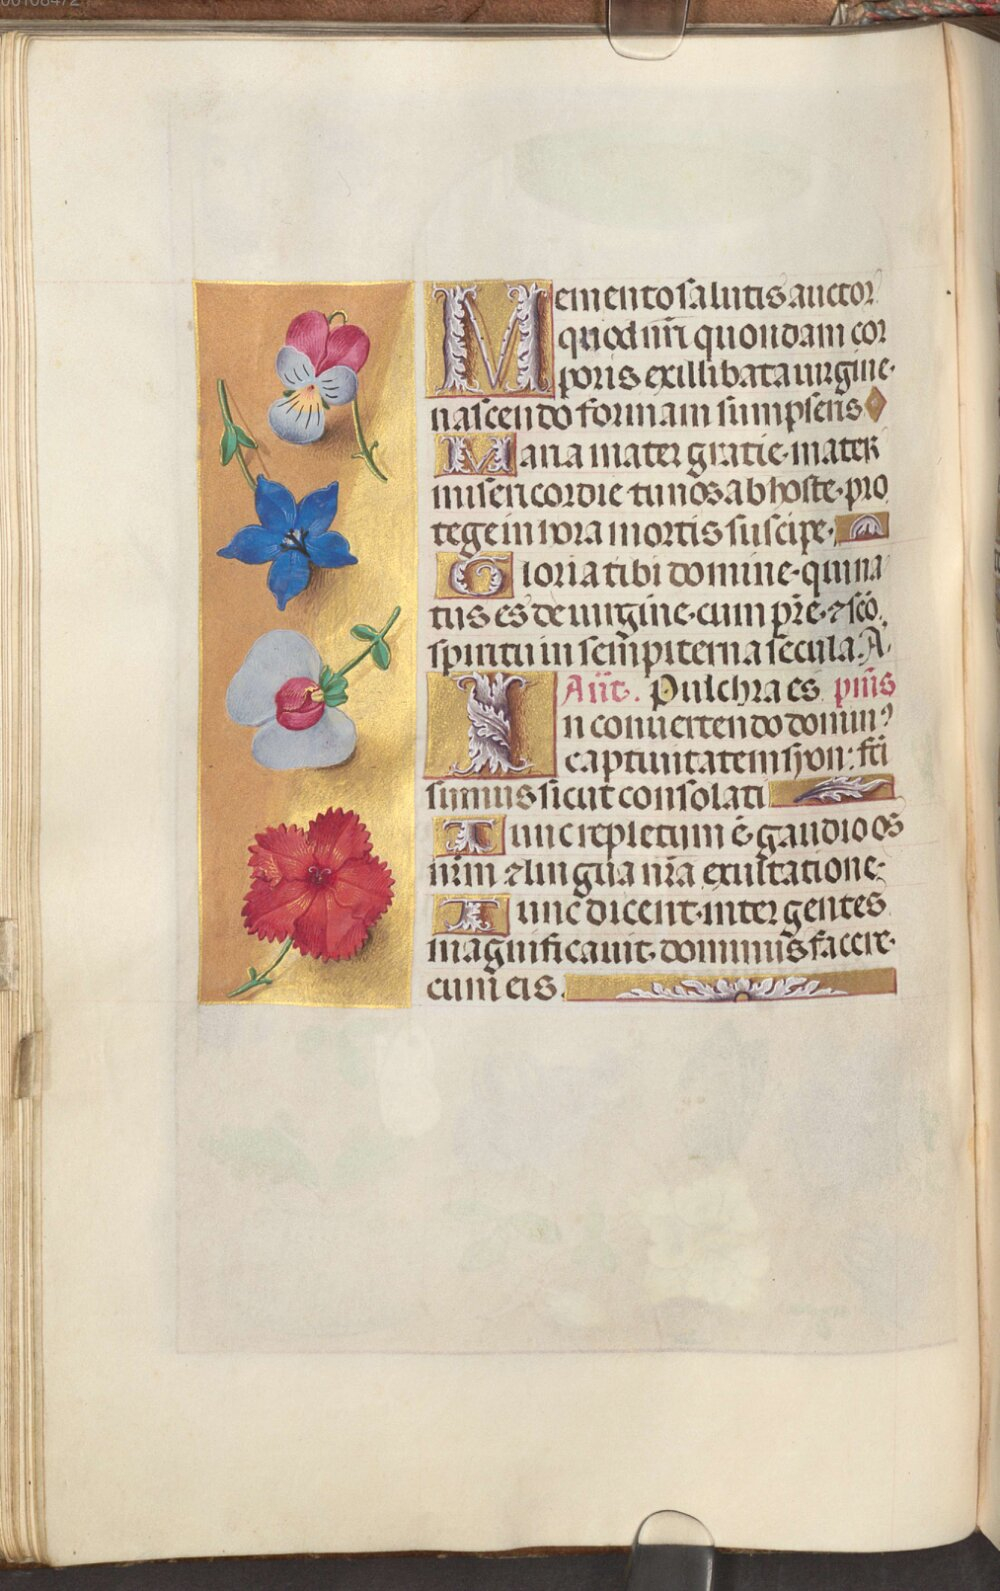 Memento salutis auctor
quod nr̄i quondam cor
poris ex illibata uirgine·
nascendo formam sumpseris
Maria mater gratie·mater
misericordie tu nos ab hoste·pro
tege in hora mortis suscipe·
Gloria tibi domine·qui na
tus es de uirgine·cum pr̄e·⁊ sc̄o.
spiritu in sempiterna secula. A·
Añt. Pulchra es p̄mũs
In conuertendo domin⁹
captiuitatem syon: fc̄i
sumus sicut consolati
Tunc repletum ē gaudio os
nr̄m ⁊ lingua nr̄a exultatione·
Tunc dicent·inter gentes
magnificauit·dominus facere·
cum eis.